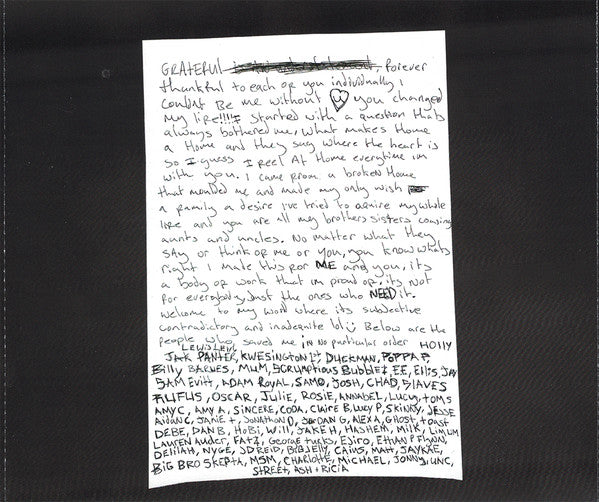 GRATEFUL is an understatement, forever
thankful to each of you individually I
couldnt Be me without U you changed
My life!!!! I started with a question thats
always bothered me, what makes Home
a Home and they say where the heart is
so I guess I feel At Home everytime im
with you. I came from a broken Home
that moulded me and made my only wish
a family a desire ive tried to aquire my whole
life and you are all my brothers sisters cousins
aunts and uncles. No matter what they
say or think of me or you, you know whats
right I made this for ME and you, its
a body of work that im proud of, its not
for everybody Just the ones who NEED it.
Welcome to my world where its subjective
contradictory and inadequite lol :) Below are the
people who saved me in No particular order HOLLY
LEWIS LEVI
JACK PANTER, KWESINGTON, DUCKMAN, POPPA P,
Billy BARNES, MUM, SCRUMPTIOUS Bubblez, EE, Ellis, JAY
SAM Evitt, ADAM ROYAL, SAMO, JOSH, CHAD, SLAVES
RUFUS, OSCAR, Julie, ROSIE, ANNABEL, Lucy, toms
AMY C, AMY A, SINCERE, CODA, Claire B, Lucy P, SKINNY, JESSE
Aidan C, Janie +, Jonathon D, Jordan G, ALEXA, GHOST, toast
DEBE, DAN B, HoBi, Will, JAKE H, HASHEM, Milk, Lim Lum
LAUREN Auder, FATZ, George tucks, ESiro, Ethan P Flynn,
Delilah, NYGE, JD REID, BIB JELLY, CAIUS, Matt, JAYKAE,
BIG BRO SKEPTA, MSM, CHARLOTTE, MICHAEL, JONNY, UNC,
STREET, ASH + RICIA